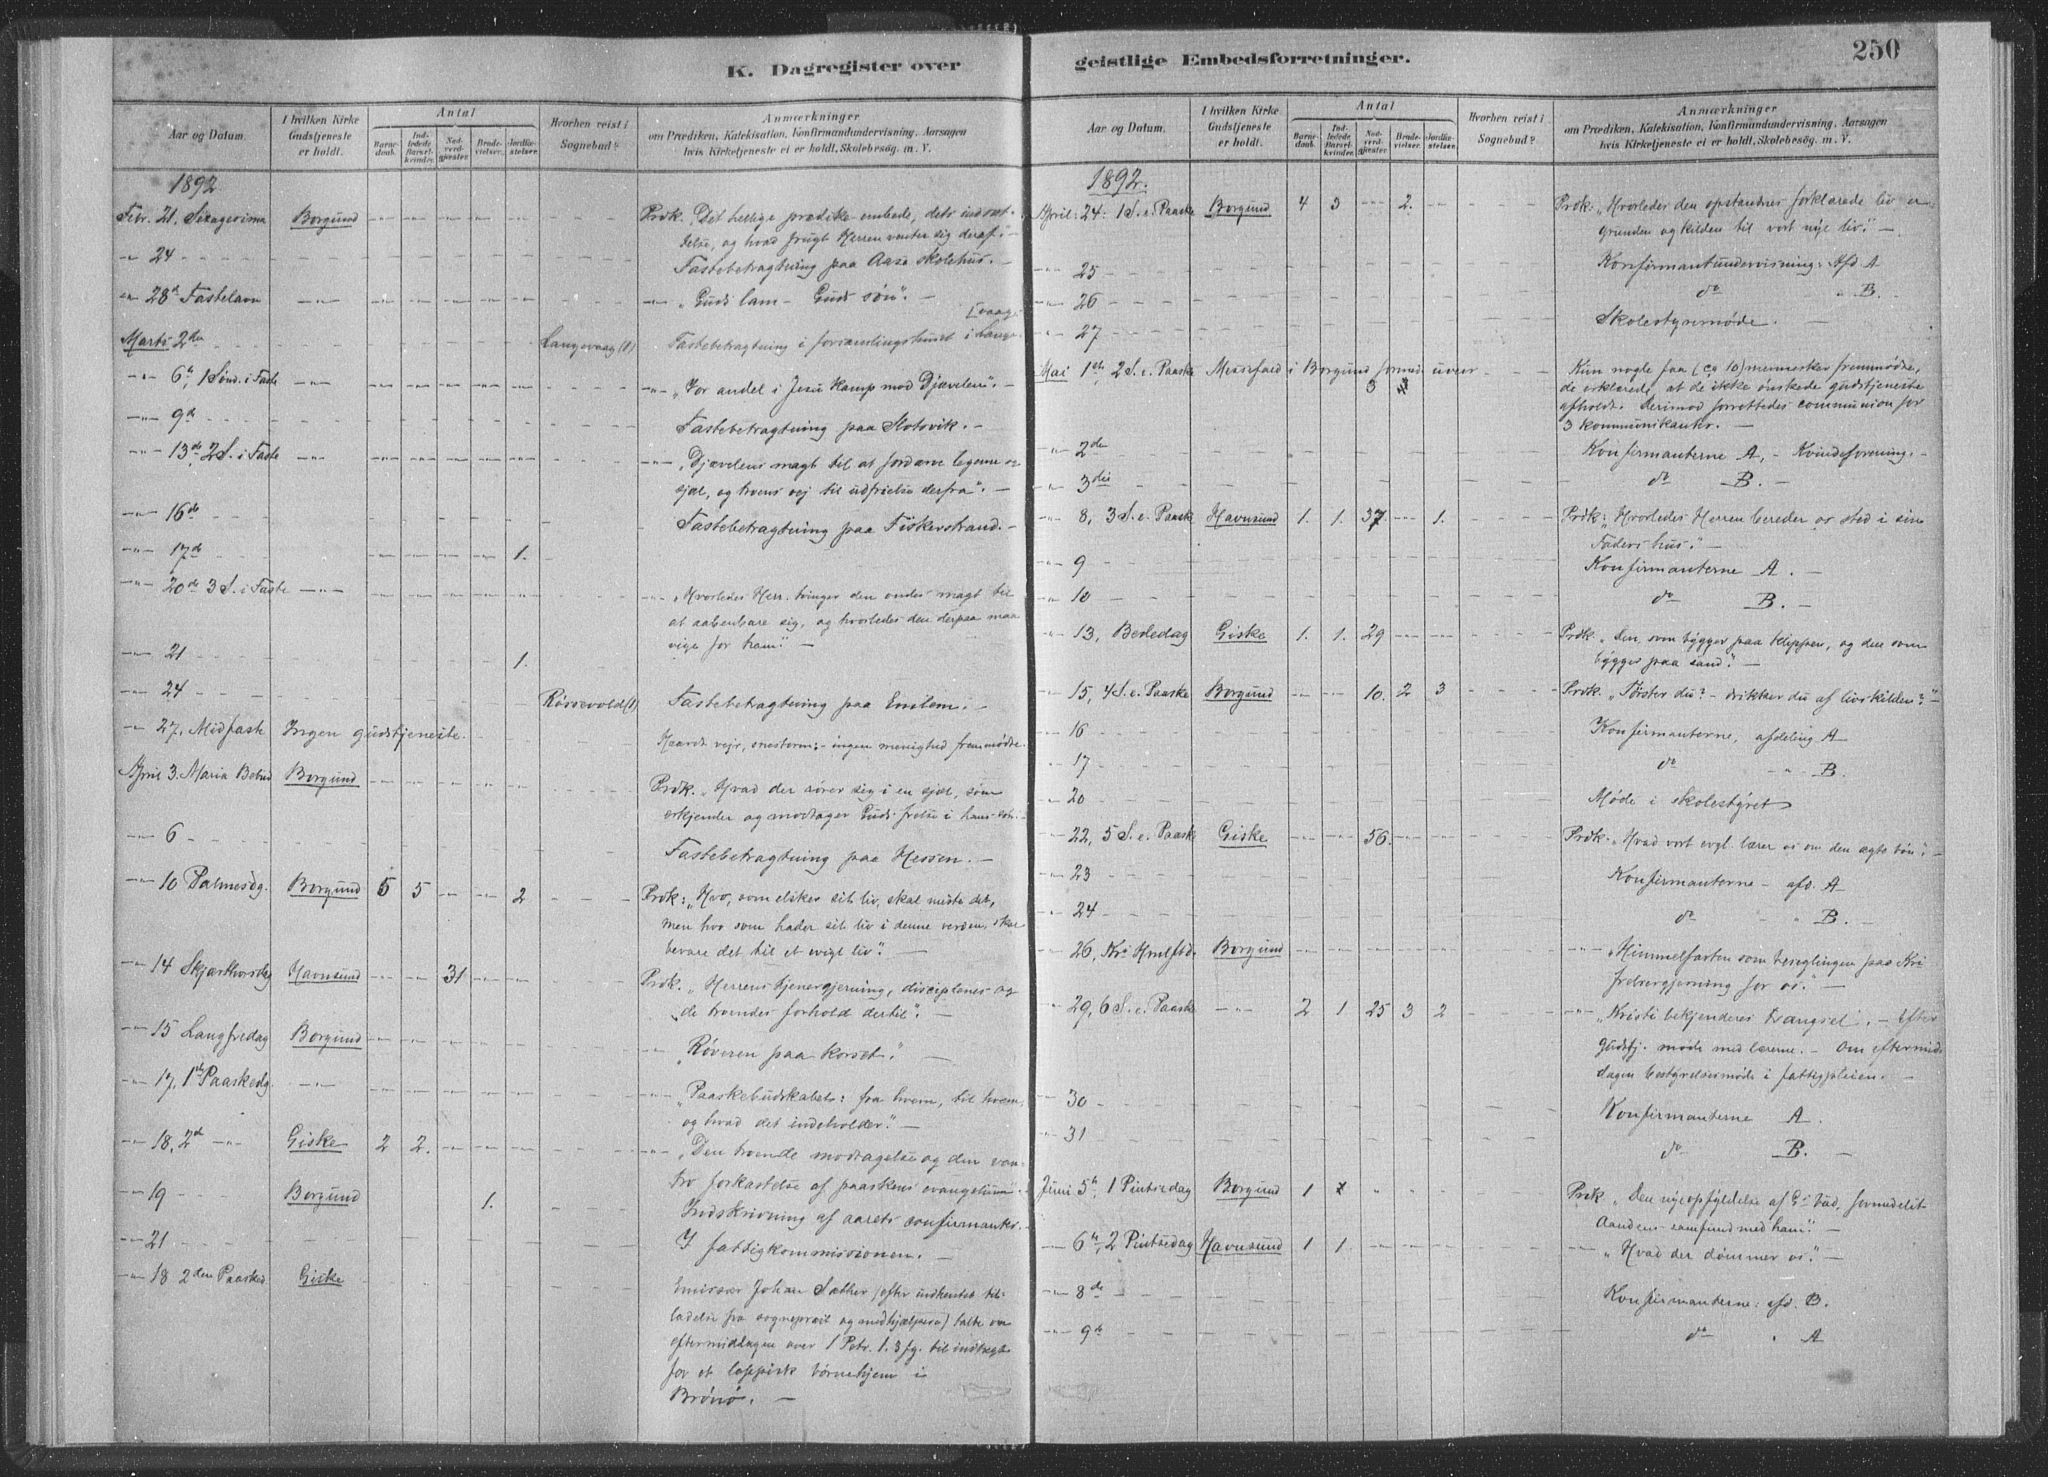 K. Dagregister over
Aar og Datum.
I hvilken Kirke Gudstjeneste er holdt.
Antal
Barnedaab.
Indledede Barselkvinder.
Nadverdgjester.
Brudevielser.
Jordfæstelser.
Hvorhen reist i Sognebud?
Anmærkninger
om Prædiken, Katekisation, Konfirmandundervisning, Aarsagen
hvis Kirketjeneste ei er holdt, Skolebesøg. m. V.
1892
Febr. 21. Sexagesima Borgund Prdk. "Det hellige prædikeembede, dets indstif-
telse, og hvad frugt Herren venter sig deraf". -
24 Fastebetragtning paa Aase skolehus. -
28d Fastelavn -"- -"- "Guds lam - Guds søn". -
[vaag.
Marts 2den Langevaag (1) Fastebetragtning i forsamlingshuset i Lange-
-"- 6te, 1 Sønd. i Faste -"- -"- "Vor andel i Jesu kamp mod Djævelen". -
-"- 9de Fastebetragtning paa Slotsvik. -
-"- 13de, 2 S. i Faste -"- "Djævelens magt til at fordærve legeme og
sjæl, og troens vej til udfrielse derfra". -
-"- 16de Fastebetragtning paa Fiskerstrand. -
-"- 17de 1.
-"- 20de 3 S. i Faste -"- -"- "Hvorledes Herr. tvinger den ondes magt til
at aabenbare sig, og hvorledes den derpaa maa
vige for ham". -
-"- 21 1.
-"- 24 Røssevold (1) Fastebetragtning paa Emlem. -
-"- 27. Midfaste Ingen gudstjeneste. Haardt vejr, snestorm; - ingen menighed fremmødte.
April 3. Maria Bebud Borgund Prdk. "Hvad der rører sig i en sjæl, som
erkjender og modtager Guds frelse i hans søn. -
-"- 6 Fastebetragtning paa Hessen. -
-"- 10 Palmesdg. Borgund 5 5 2 Prdk: "Hvo, som elsker sit liv, skal miste det,
men hvo som hader sit liv i denne verden, skal
bevare det til et evigt liv". -
-"- 14 Skjærthorsdag Havnsund 31 Prdk. "Herrens tjenergjerning, disciplenes og
de troendes forhold dertil". -
-"- 15 Langfredag Borgund "Røveren paa korset". -
-"- 17, 1ste Paaskedg. -"- -"- "Paaskebudskabet: fra hvem, til hvem,
og hvad det indeholder". -
-"- 18, 2d -"- Giske 2 2. -"- "Den troende modtagelse og den van-
tro forkastelse af paaskens evangelium". -
-"- 19 Borgund 1. Indskrivning af aarets confirmanter. -
-"- 21 I fattigkommissionen. -
-"- 18 2den Paasked Giske Emissær Johan Sæther (efter indhentet til-
ladelse fra sogneprest og medhjælpere) talte om
eftermiddagen over 1 Petr. 1. 3 fg. til indtægt
for et lappisk børnehjem i
Brønø. -
geistlige Embedsforretninger.
250
Aar og Datum.
I hvilken Kirke Gudstjeneste er holdt.
Antal
Barnedaab.
Indledede Barselkvinder.
Nadverdgjester.
Brudevielser.
Jordfæstelser.
Hvorhen reist i Sognebud?
Anmærkninger
om Prædiken, Katekisation, Konfirmandundervisning, Aarsagen
hvis Kirketjeneste ei er holdt, Skolebesøg. m. V.
1892.
April: 24. 1 S. e. Paaske Borgund 4 3 2. Prdk: "Hvorledes den opstandnes forklarede liv er
grunden og kilden til vort nye liv". -
-"- 25 Konfirmantundervisning: Afd A
-"- 26 do " B. -
-"- 27 Skolestyremøde. -
Mai 1ste, 2 S. e. Paaske Messefald i Borgund formed. uveir 3 Kun nogle faa (ca 10) mennesker fremmødte,
de erklærede, at de ikke ønskede gudstjeneste
afholdt. Derimod forrettedes communion for
3 kommunikanter. -
-"- 2den Konfirmanterne A. - Kvindeforening. -
-"- 3die do B. -
-"- 8, 3 S. e. Paaske Havnsund 1. 1. 37 1. Prdk: "Hvorledes Herren bereder os sted i sin
Faders hus". -
-"- 9 Konfirmanterne A. -
-"- 10 do B. -
-"- 13, Bededag Giske 1. 1. 29 Prdk. "Den, som bygger paa klippen, og den som
bygger paa sand". -
-"- 15, 4 S. e. Paaske Borgund 10. 2 3 Prdk. "Tørster du? - drikker du af livskilden?" -
-"- 16 Konfirmanterne, afdeling A
-"- 17 do -"- B.
-"- 20 Møde i skolestyret
-"- 22, 5 S. e. Paaske Giske 56. Prdk. "Hvad vort evgl. lærer os om den ægte bøn". -
-"- 23 Konfirmanterne - afd. A
-"- 24 do " B. -
-"- 26, Kri Hmlftd. Borgund -"- "Himmelfarten som beseglingen paa Kri
frelsergjerning for os". -
-"- 29, 6 S. e. Paaske -"- 2 1 25 3 2 -"- "Kristi bekjenderes trængsel". - Efter
gudstj. møde med lærerne. - Om eftermid-
dagen bestyrelsesmøde i fattigpleien. -
-"- 30 Konfirmanterne A.
-"- 31 do B. -
Juni 5te, 1 Pintsedag Borgund 1 Prdk "Den nye opfyldelse af Gs bud, formedelst
Aandens samfund med ham". -
-"- 6te, 2 Pintsedag Havnsund 1 1. -"- "Hvad der dømmer os". -
-"- 8de Konfirmanterne: afd. B.
-"- 9de do " A